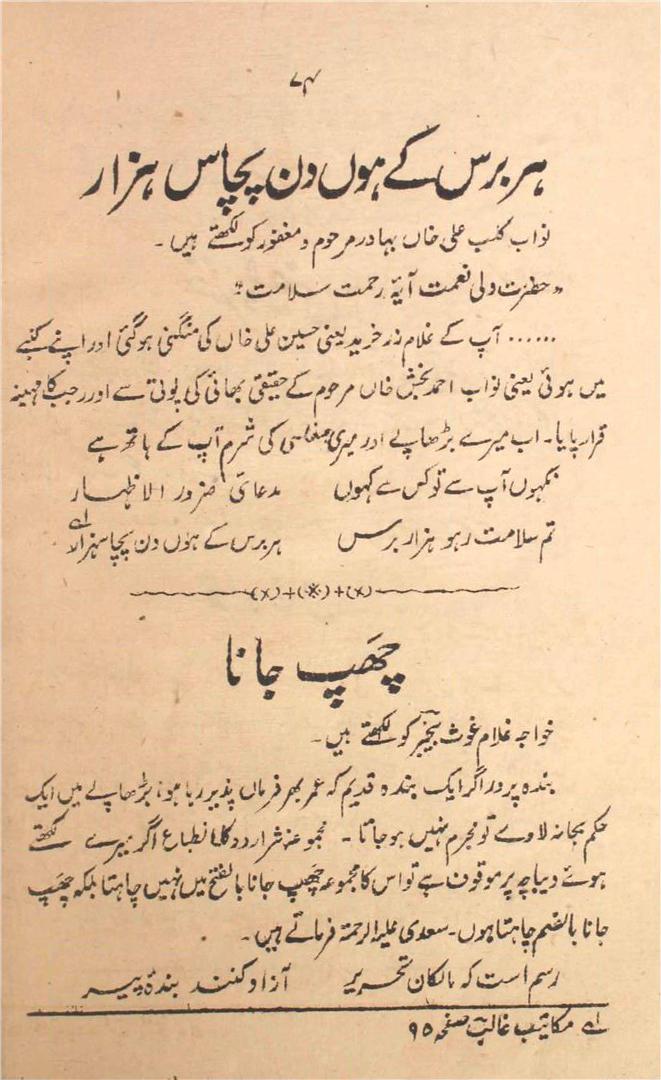 ۷۴
ہر برس کے ہوں دن پچاس ہزار
نواب کلب علی خاں بہادر مرحوم و مغفور کو لکھتے ہیں۔
"حضرت ولی نعمت آیۂ رحمت سلامت"
...... آپ کے غلام زر خرید یعنی حسین علی خاں کی منگنی ہوگئی اور اپنے کنبے
میں ہوئی یعنی نواب احمد بخش خاں مرحوم کے حقیقی بھائی کی پوتی سے اور رجب کا مہینہ
قرار پایا۔ اب میرے بڑھاپے اور میری مفلسی کی شرم آپ کے ہاتھ ہے
نکہوں آپ سے تو کس سے کہوں مدعائے ضرور الاظہار
تم سلامت رہو ہزار برس ہر برس کے ہوں دن پچاس ہزار لہ
چھپ جانا
خواجہ غلام غوث بیخبر کو لکھتے ہیں۔
بندہ پرور اگر ایک بندہ قدیم کہ عمر بھر فرماں پذیر رہا ہو، بڑھاپے میں ایک
حکم بجا نہ لاوے تو مجرم نہیں ہو جاتا۔ مجموعہ نثر اردو کا انطباع اگر میرے لکھے
ہوئے دیباچہ پر موقوف ہے تو اس کا مجموعہ چھَپ جانا بالفتح میں نہیں چاہتا بلکہ چھُپ
جانا بالضم چاہتا ہوں۔ سعدی علیہ الرحمۃ فرماتے ہیں۔
رسم است کہ مالکان تحریر آزاد کنند بندۂ پیر
لہ مکاتیب غالب صفحہ ۹۵